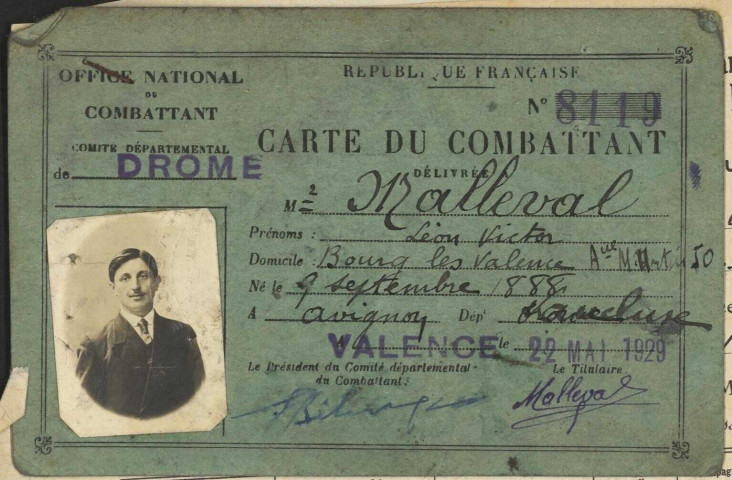 OFFICE NATIONAL
DU
COMBATTANT
COMITÉ DÉPARTEMENTAL
de DROME
RÉPUBLIQUE FRANÇAISE
N° 8119
CARTE DU COMBATTANT
DÉLIVRÉE
M Malleval
Prénoms : Léon Victor
Domicile : Bourg les Valence 50
Né le 9 septembre 1888
A avignon Dép' Vaucluse
VALENCE le 22 MAI 1929
Le Président du Comité départemental
du Combattant :
Le Titulaire
Malleval